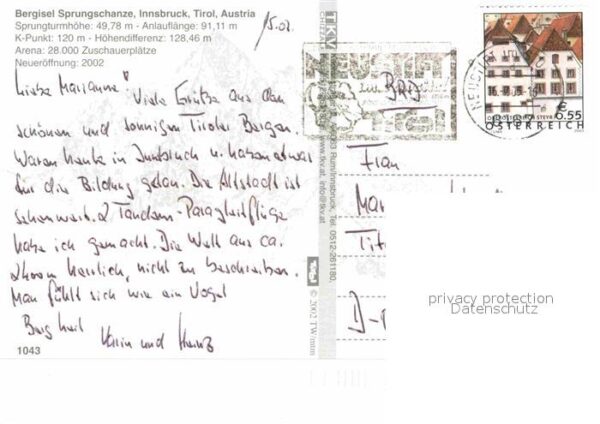 Bergisel Sprungschanze, Innsbruck, Tirol, Austria
Sprungturmhöhe: 49,78 m - Anlauflänge: 91,11 m
K-Punkt: 120 m - Höhendifferenz: 128,46 m
Arena: 28.000 Zuschauerplätze
Neueröffnung: 2002
15.08.
Liebe Marianne!
Viele Grüße aus den
schönen und sonnigen Tiroler Bergen.
Waren heute in Innsbruck u. haben etwas
für die Bildung getan. Die Altstadt ist
sehenswert. 2 Tandem-Paragleitflüge
habe ich gemacht. Die Welt aus ca.
2hoom herrlich, nicht zu beschreiben.
Man fühlt sich wie ein Vogel
Berg heil
Karin und Heinz
1043
TKV
Rum/Innsbruck, Tel. 0512-261180,
www.tkv.at, info@tkv.at
Tirol
© 2002 TW/mtm
NEUSTIFT
BRD
Frau
Mar
Tit
D-
€ 0,55
ÖSTERREICH
privacy protection
Datenschutz